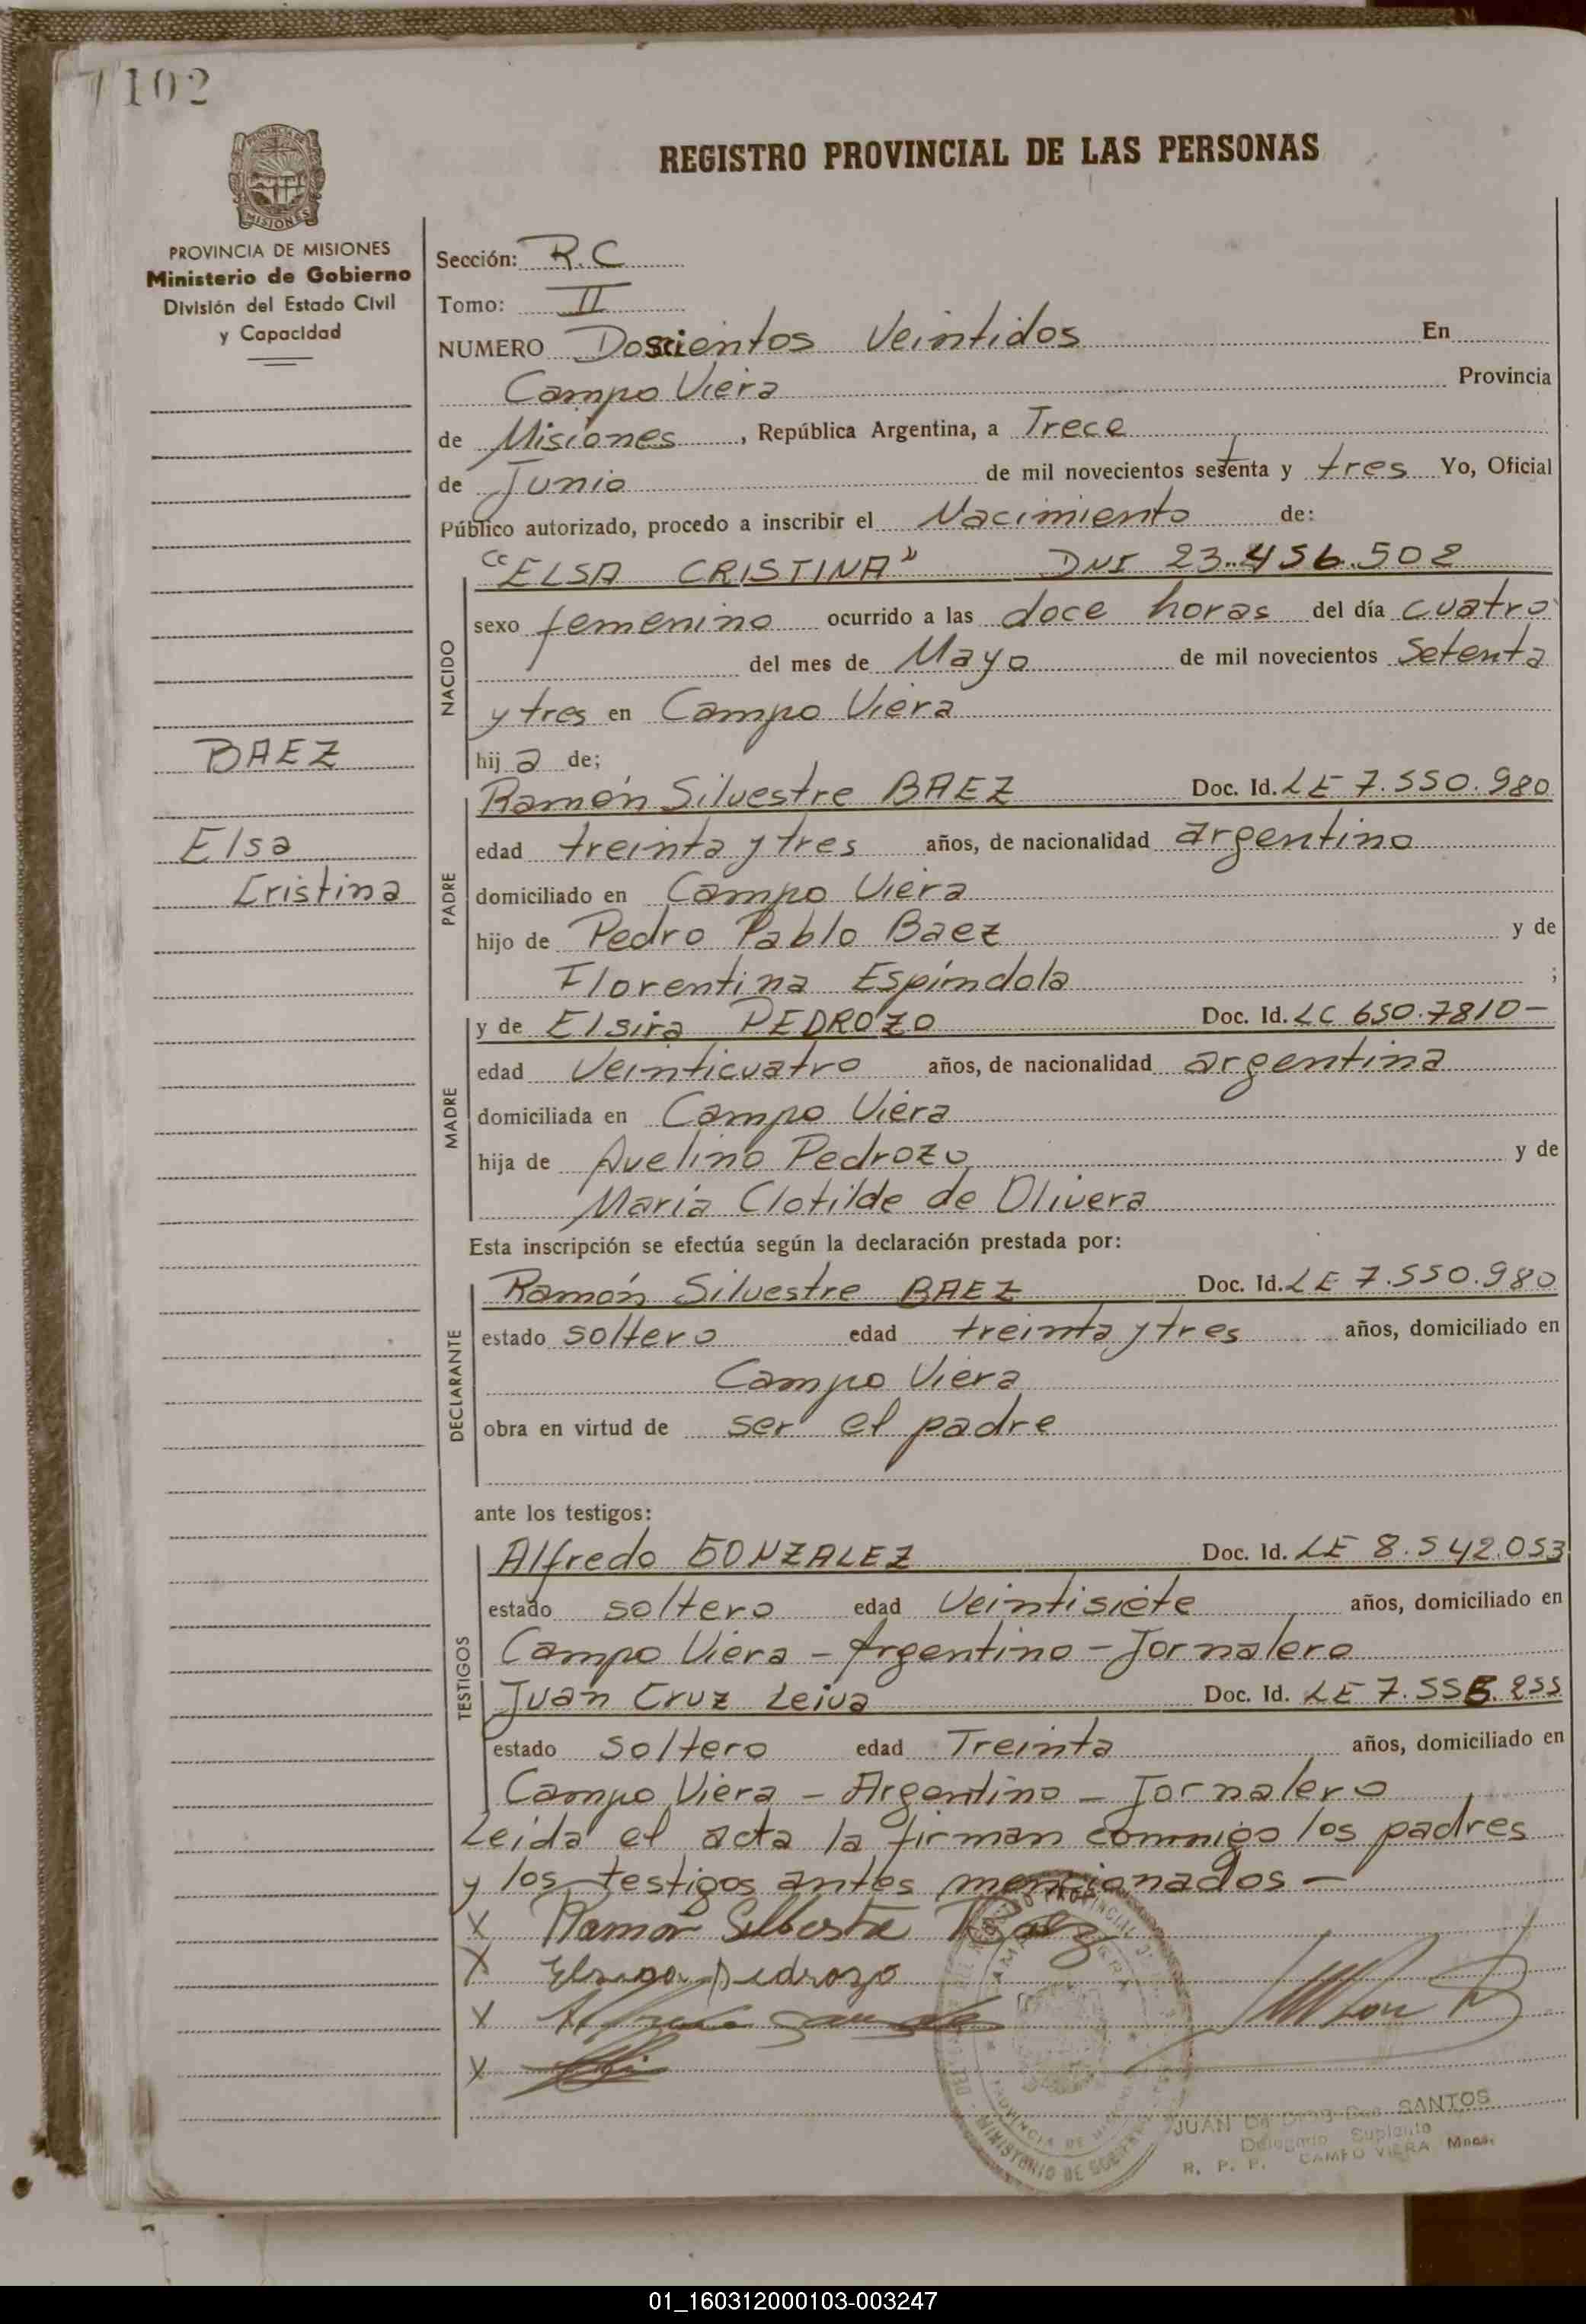 102
REGISTRO PROVINCIAL DE LAS PERSONAS
PROVINCIA DE MISIONES
Ministerio de Gobierno
División del Estado Civil
y Capacidad
Sección: R.C
Tomo: II
NUMERO Doscientos Veintidos En
Campo Viera Provincia
de Misiones, República Argentina, a Trece
de Junio de mil novecientos setenta y tres Yo, Oficial
Público autorizado, procedo a inscribir el Nacimiento de:
"ELSA CRISTINA" DNI 23.456.502
NACIDO
sexo femenino ocurrido a las doce horas del día cuatro
del mes de Mayo de mil novecientos Setenta
y tres en Campo Viera
hij a de;
BAEZ
Elsa
Cristina
PADRE
Ramón Silvestre BAEZ Doc. Id. LE 7.550.980
edad treinta y tres años, de nacionalidad argentino
domiciliado en Campo Viera
hijo de Pedro Pablo Baez y de
Florentina Espíndola ;
MADRE
y de Elsira PEDROZO Doc. Id. LC 650.7810-
edad Veinticuatro años, de nacionalidad argentina
domiciliada en Campo Viera
hija de Avelino Pedrozo y de
María Clotilde de Olivera
Esta inscripción se efectúa según la declaración prestada por:
DECLARANTE
Ramón Silvestre BAEZ Doc. Id. LE 7.550.980
estado soltero edad treinta y tres años, domiciliado en
Campo Viera
obra en virtud de ser el padre
ante los testigos:
TESTIGOS
Alfredo GONZALEZ Doc. Id. LE 8.542.053
estado soltero edad Veintisiete años, domiciliado en
Campo Viera - Argentino - Jornalero
Juan Cruz Leiva Doc. Id. LE
estado Soltero edad Treinta años, domiciliado en
Campo Viera - Argentino - Jornalero
Leida el acta la firman conmigo los padres
y los testigos antes mencionados -
X Ramon Silbestre Baez
X Pedrozo
X
X
MINISTERIO DE GOBIERNO
PROVINCIA DE MISIONES
JUAN SANTOS
Delegado Suplente
R. P. P. CAMPO VIERA Mnes.
01_160312000103-003247